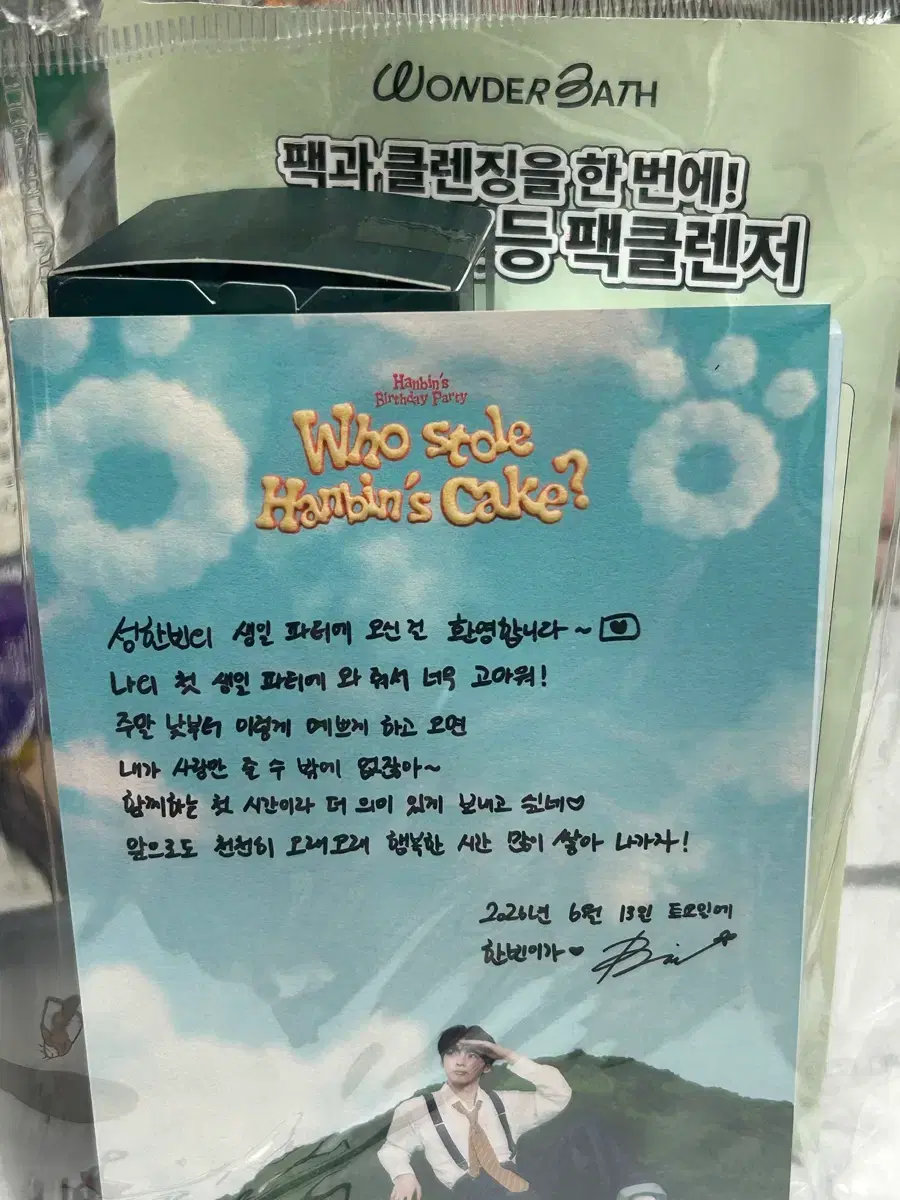 WONDER BATH
팩과 클렌징을 한 번에!
등 팩클렌저
Hanbin's
Birthday Party
Who stole
Hanbin's Cake?
성한빈의 생일 파티에 오신 건 환영합니다~
나의 첫 생일 파티에 와 줘서 너무 고마워!
주말 낮부터 이렇게 예쁘게 하고 오면
내가 사랑만 줄 수 밖에 없잖아~
함께하는 첫 시간이라 더 의미 있게 보내고 싶네♡
앞으로도 천천히 오래오래 행복한 시간 많이 쌓아 나가자!
2026년 6월 13일 토요일에
한빈이가♥ Bin